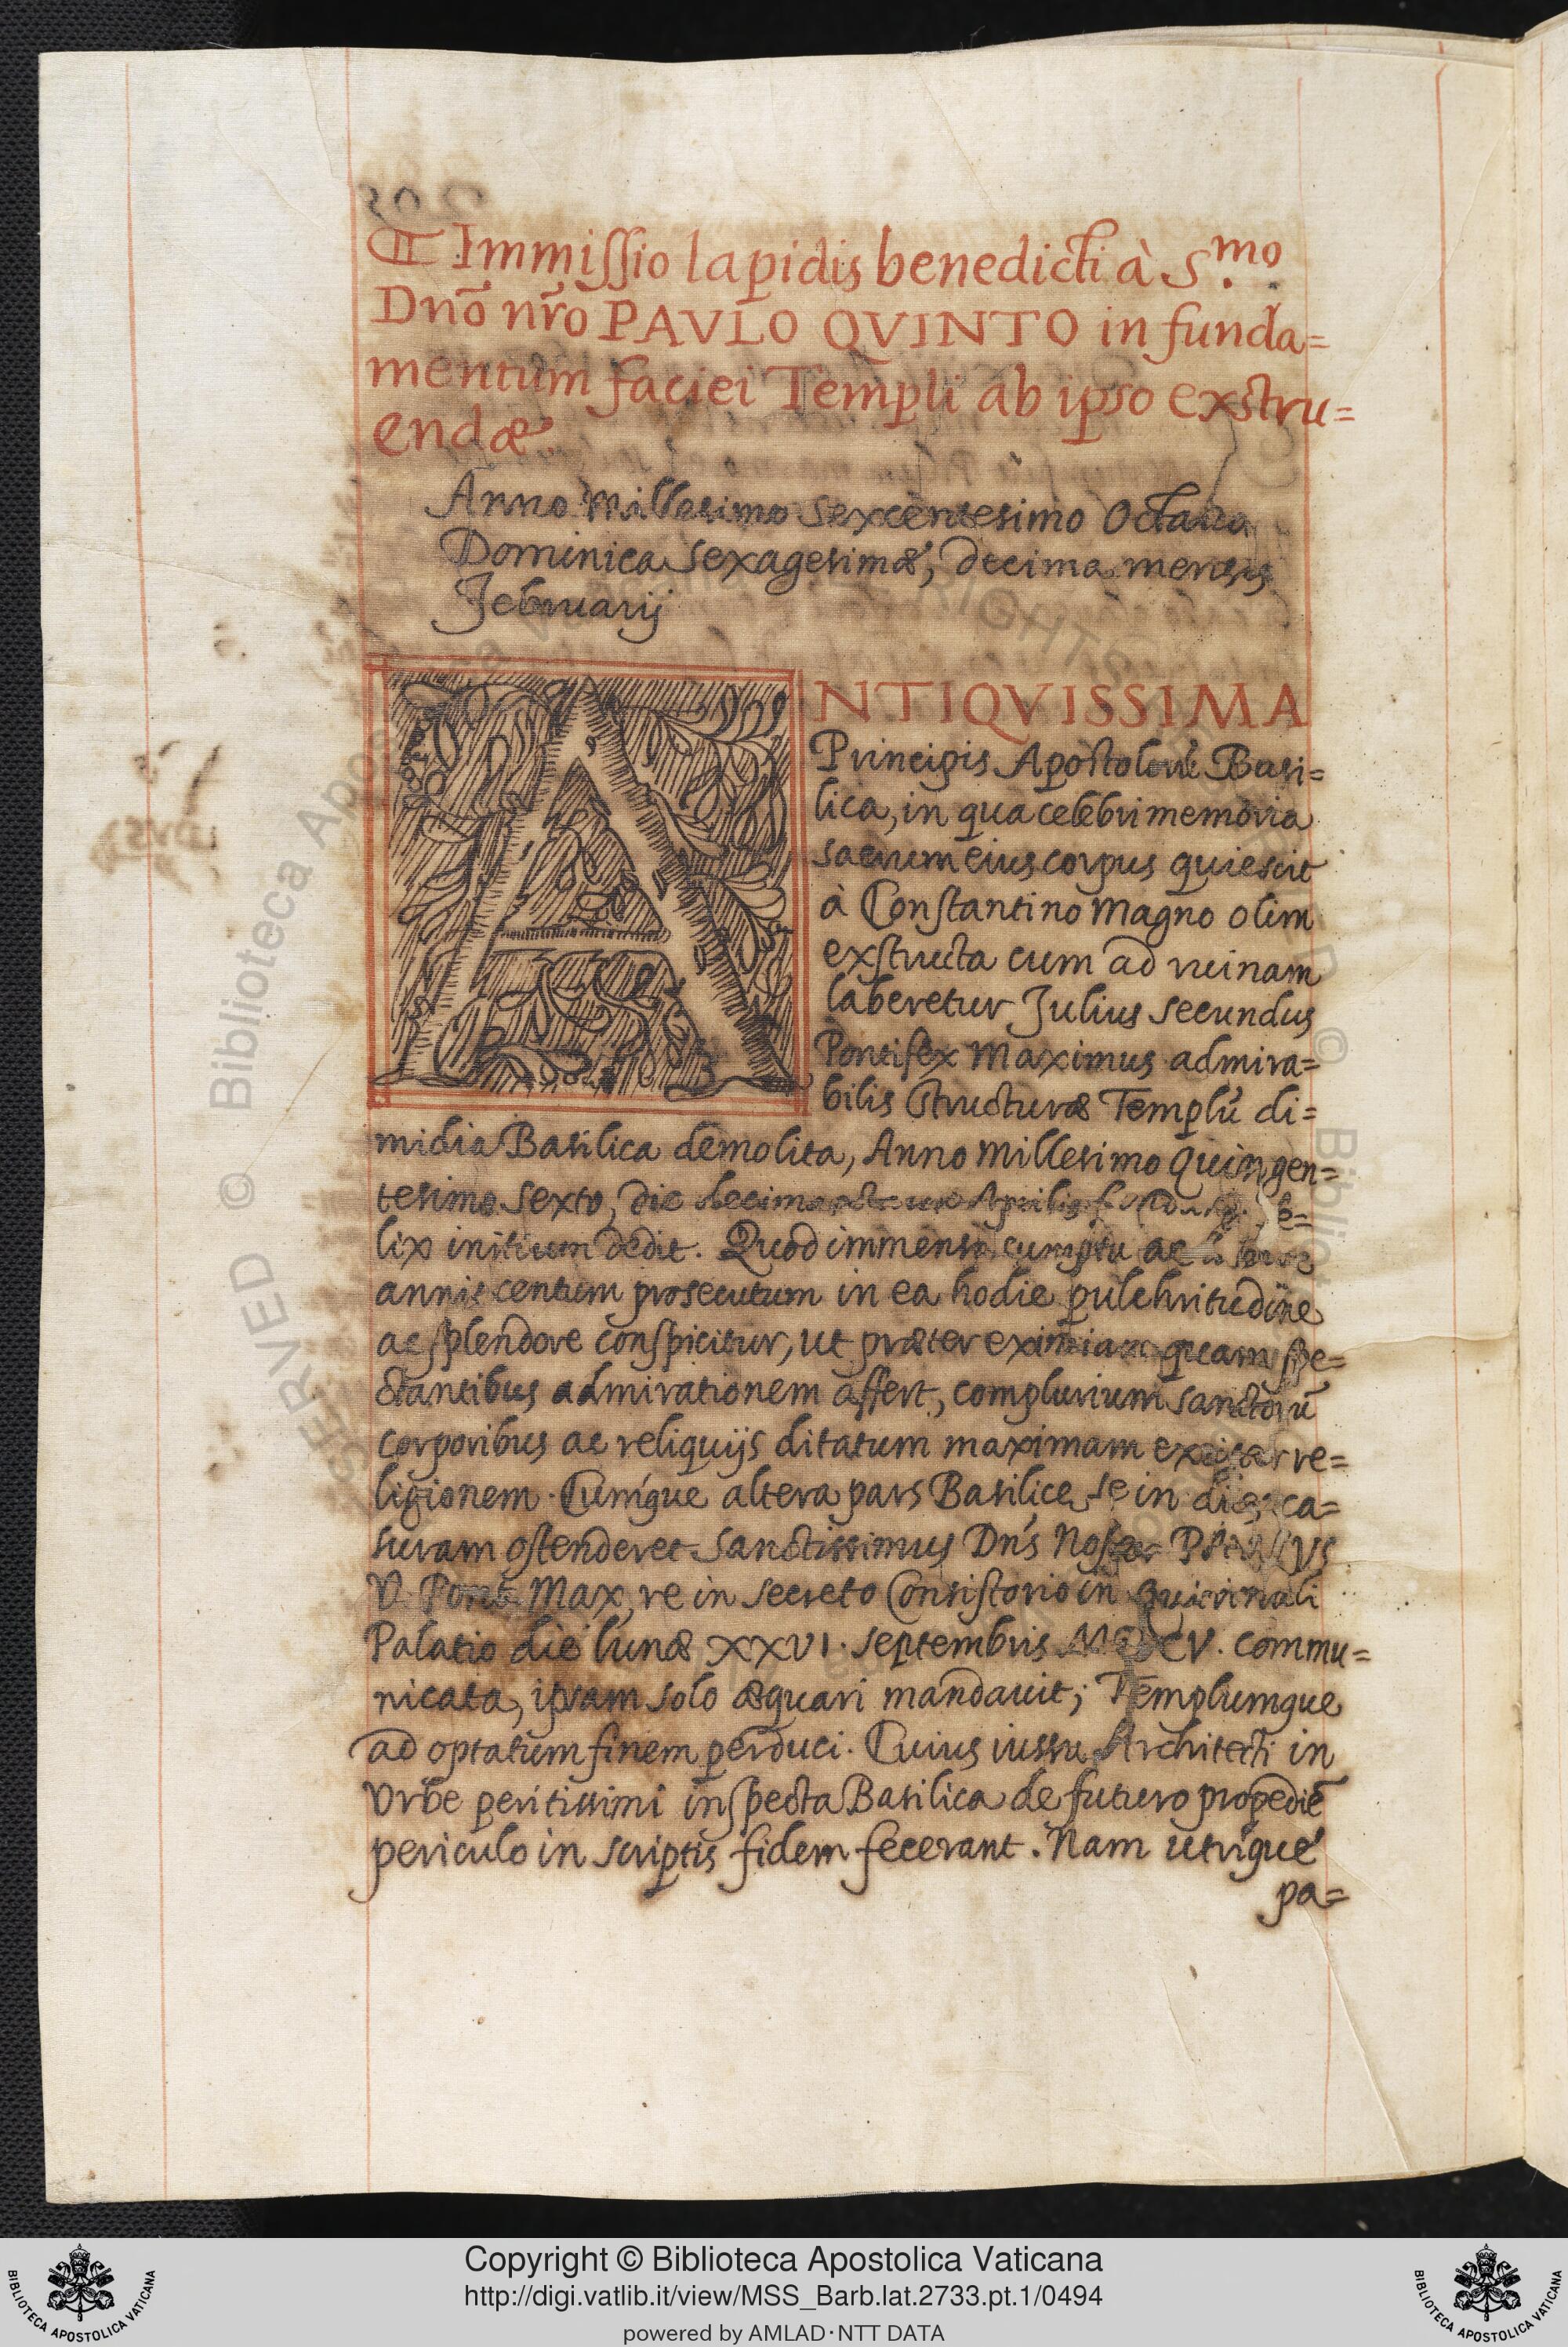 ¶ Immissio lapidis benedicti à S.mo
Dnõ nr̃o PAVLO QVINTO in funda=
mentum faciei Templi ab ipso exstru=
endæ.
Anno Millesimo sexcentesimo Octauo
Dominica sexagesimæ, decima mensis
Februarij
ANTIQVISSIMA
Principis Apostolorũ Basi=
lica, in qua celebri memoria
sacrum eius corpus quiescit
à Constantino Magno olim
exstructa cum ad ruinam
laberetur Julius secundus
Pontifex Maximus admira=
bilis structuræ Templũ di=
midia Basilica demolita, Anno Millesimo Quingen=
tesimo sexto, die Aprilis fe=
lix initium dedit. Quod immenso sumptu ac labore
annis centum prosecutum in ea hodie pulchritudine
ac splendore conspicitur, ut præter eximiam quam spe=
ctantibus admirationem affert, complurium sanctorũ
corporibus ac reliquijs ditatum maximam excitet re=
ligionem. Cumq́ue altera pars Basilice se in dies ca=
suram ostenderet sanctissimus Dñs Noster PAVLVS
V. Pont. Max, re in secreto Consistorio in Quirinali
Palatio die lunæ XXVI. septembris MDCV. commu=
nicata, ipsam solo æquari mandauit; Templumque
ad optatum finem perduci. Cuius iussu Architecti in
Vrbe peritissimi inspecta Basilica de futuro propediẽ
periculo in scriptis fidem fecerant. Nam utriq́ue
pa=
Copyright © Biblioteca Apostolica Vaticana
http://digi.vatlib.it/view/MSS_Barb.lat.2733.pt.1/0494
powered by AMLAD·NTT DATA
BIBLIOTECA APOSTOLICA VATICANA
BIBLIOTECA APOSTOLICA VATICANA